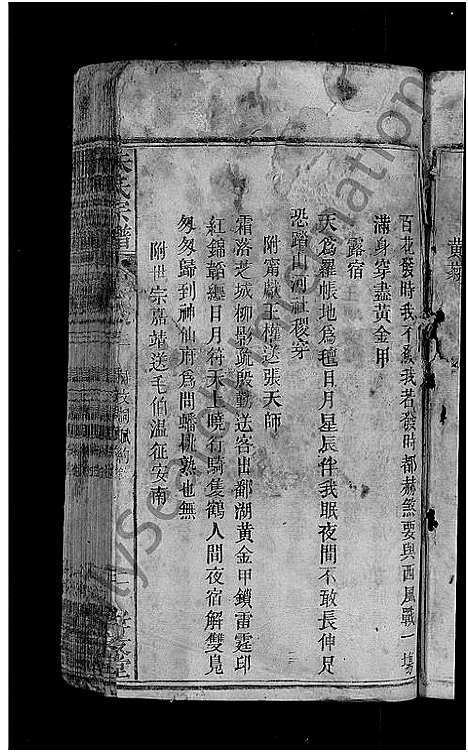 黃
百花發時我不發我若發時都赫煞要與西風戰一場
滿身穿盡黃金甲
露宿
天爲羅帳地爲氊日月星辰伴我眠夜間不敢長伸足
恐踏山河社稷穿
附甯獻王權送張天師
霜落芝城柳影疏殷勤送客出鄱湖黃金甲鎖雷霆印
紅錦韜纏日月符天上曉行騎隻鶴人間夜宿解雙鳧
匆匆歸到神仙府爲問蟠桃熟也無
附世宗嘉靖送毛伯溫征安南
朱氏宗譜